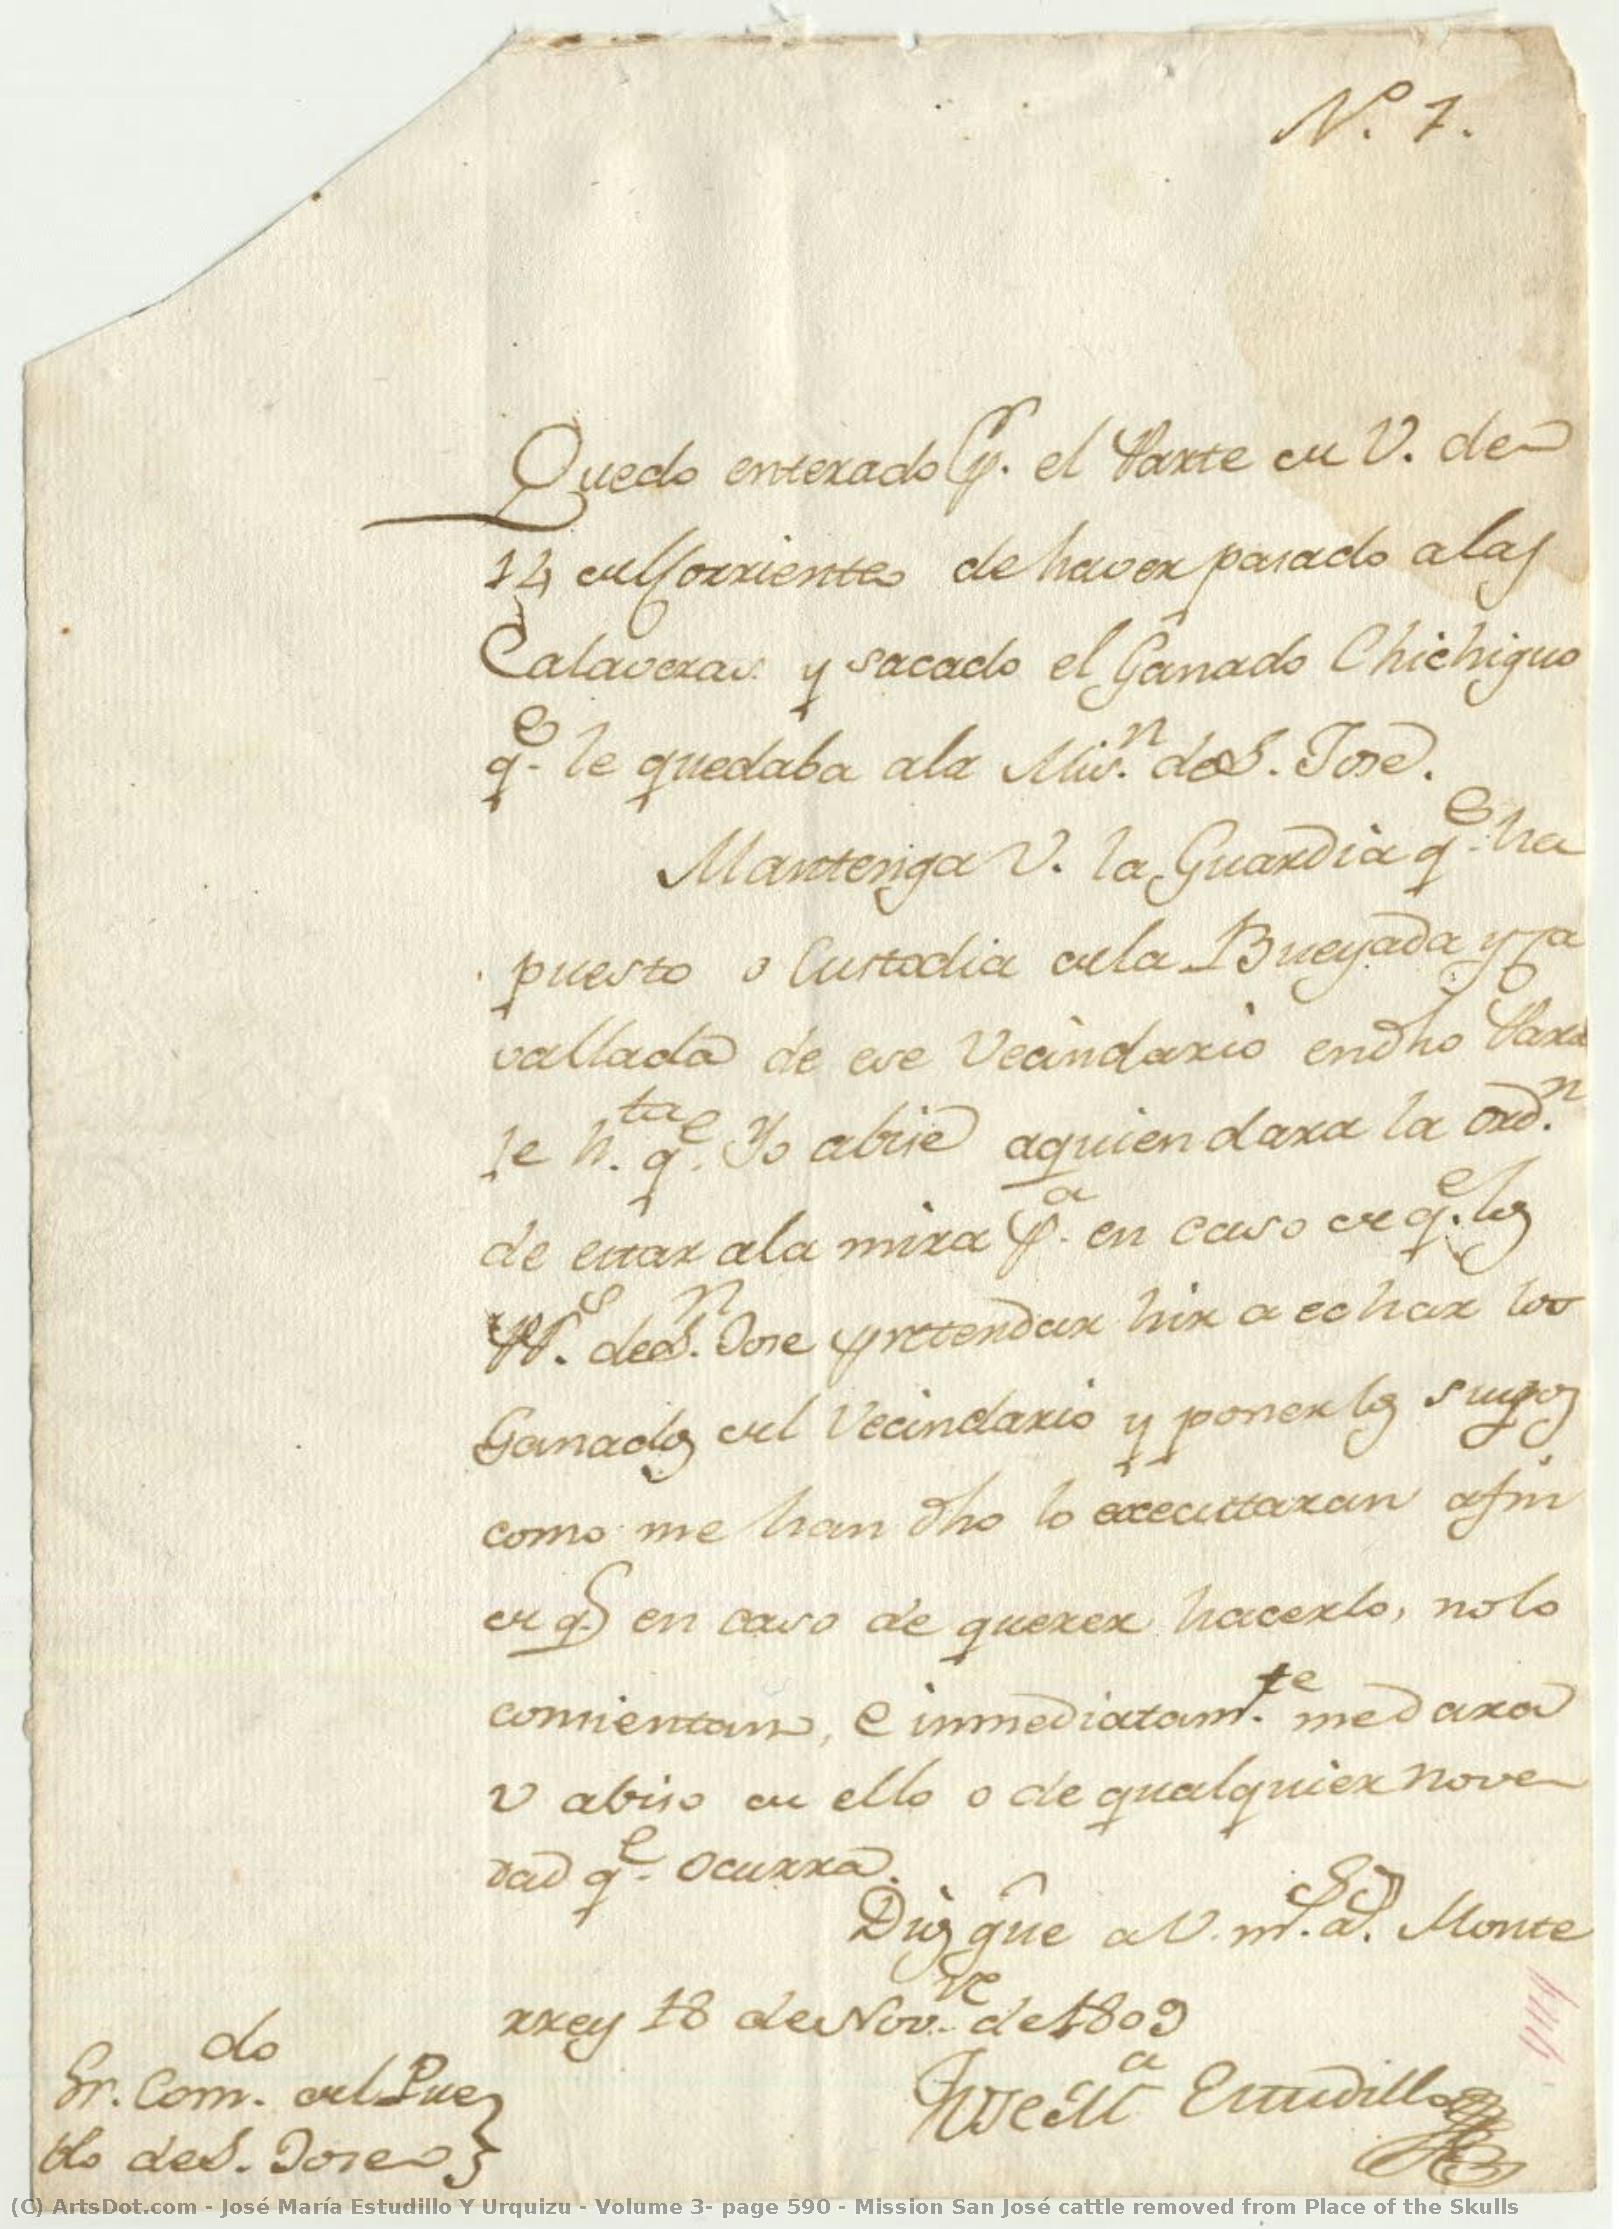 N.o 7.
Quedo enterado pr. el Parte de V. de
14 del Corriente de haver pasado a las
Calaveras y sacado el Ganado Chichiguo
qe. le quedaba ala Mis.n de S. Jose.
Mantenga V. la Guardia qe. ha
puesto o Custodia dela Bueyada y Ca
vallada de ese Vecindario en dho Para
le h.ta qe. Yo abise aquien dara la ord.n
de estar ala mira pa. en caso de qe. los
PP.s de S.n Jose pretendan hir a echar los
Ganados del Vecindario y poner los suyos
como me han dho lo executaran afin
de q. en caso de querer hacerlo, no lo
comientan, e inmediatam.te me dara
V abiso de ello o de qualquier nove
dad qe. ocurra.
Dios gue a V. m.s a.s Monte
rrey 18 de Nov.re de 1809
Jose M.a Estudillo
Sr. Com.do del Pue
blo de S. Jose
(C) ArtsDot.com - José María Estudillo Y Urquizu - Volume 3- page 590 - Mission San José cattle removed from Place of the Skulls